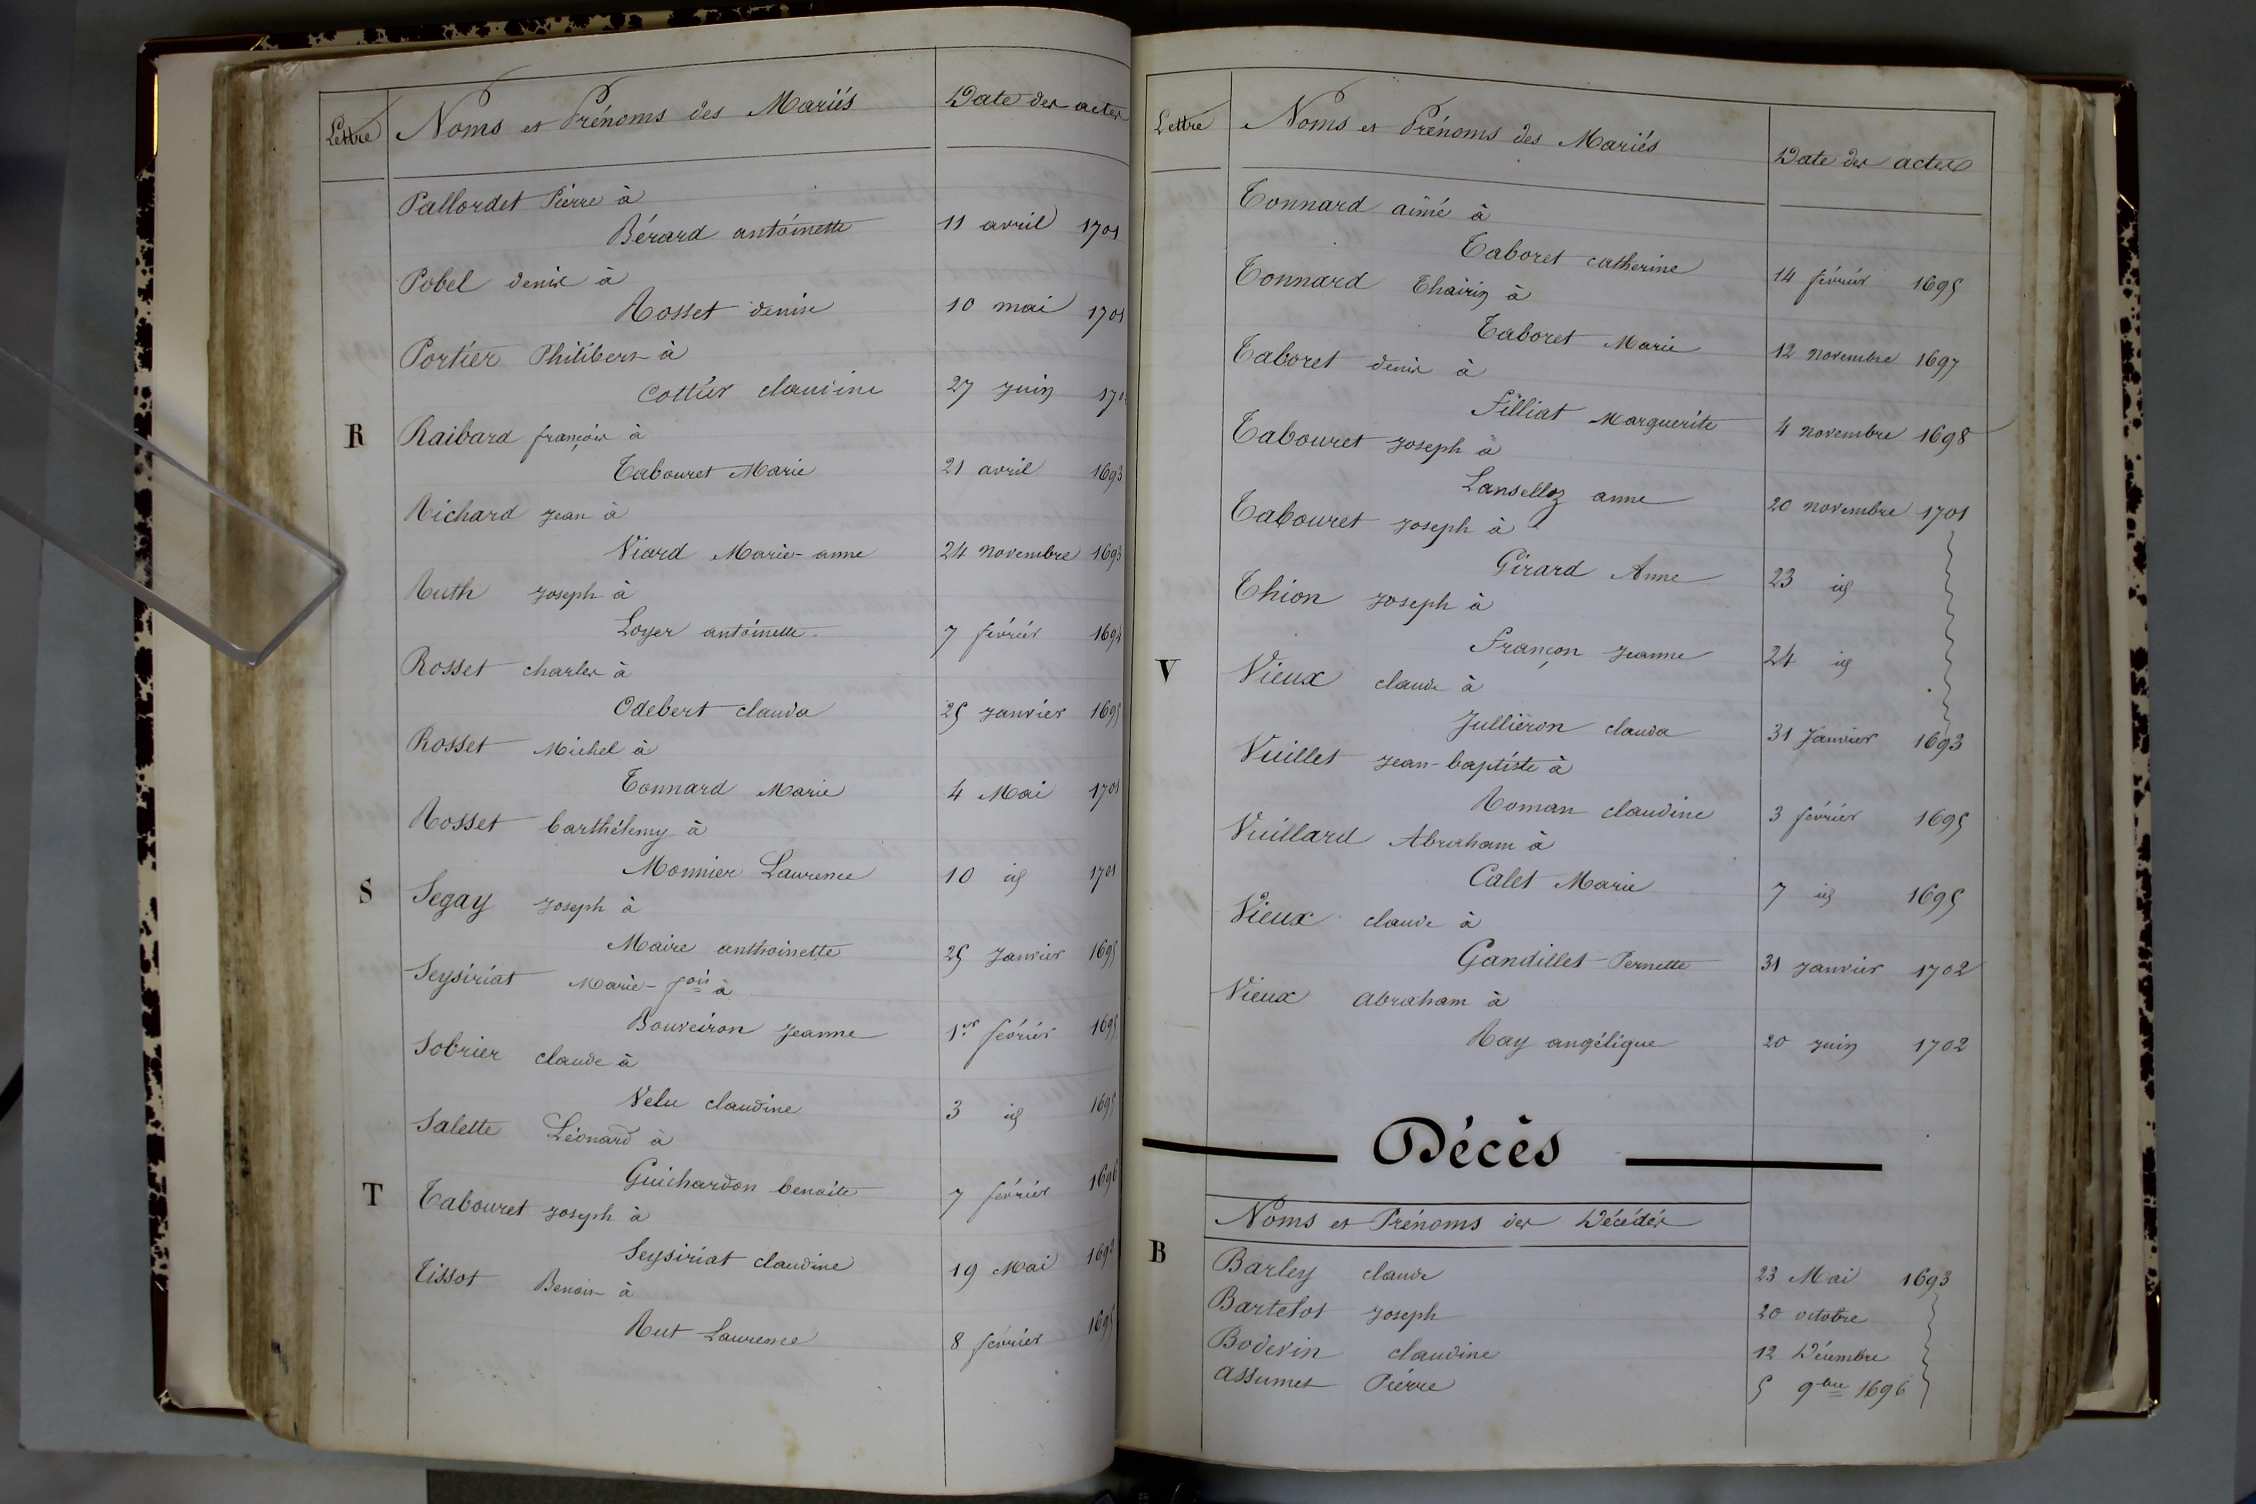 Lettre Noms et Prénoms des Mariés Date des actes
Pallordet Pierre à
Bérard antoinette 11 avril 1701
Pobel denis à
Rosset denise 10 mai 1701
Portier Philibert à
Cottier claudine 27 juin
R Raibard françois à
Tabouret Marie 21 avril 1693
Richard jean à
Viard Marie-anne 24 novembre 1693
Ruth joseph à
Loyer antoinette 7 février 1694
Rosset charles à
Odebert clauda 25 janvier 1695
Rosset Michel à
Tonnard Marie 4 Mai 1701
Rosset barthélemy à
Monnier Laurence 10 id 1701
S Segay joseph à
Maire anthoinette 25 janvier 1695
Seysiriat Marie-fois à
Bouveiron jeanne 1er février 1695
Sobrier claude à
Velu claudine 3 id 1695
Salette Léonard à
Guichardon benoite 7 février 1696
T Tabouret joseph à
Seysiriat claudine 19 Mai
Tissot Benoit à
Rut Laurence 8 février 1695
Lettre Noms et Prénoms des Mariés Date des actes
Tonnard aimé à
Taboret catherine 14 février 1695
Tonnard Thairin à
Taboret Marie 12 novembre 1697
Taboret denis à
Filliat Marguerite 4 novembre 1698
Tabouret joseph à
Lanselloz anne 20 novembre 1701
Tabouret joseph à
Girard Anne 23 id
Thion joseph à
Françon jeanne 24 id
V Vieux claude à
Julliéron clauda 31 Janvier 1693
Vuillet jean-baptiste à
Roman claudine 3 février 1695
Vuillard Abraham à
Calet Marie 7 id 1695
Vieux claude à
Gandillet Pernette 31 janvier 1702
Vieux abraham à
Ray angélique 20 juin 1702
Décès
Noms et Prénoms des Décédés
B Barley claude 23 Mai 1693
Bartelot joseph 20 octobre
Bodevin claudine 12 Décembre
assumet Pierre 5 9bre 1696